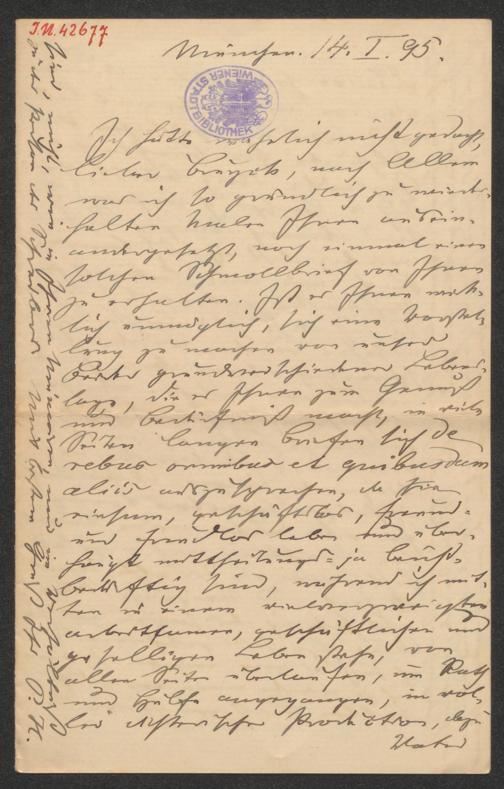 I.N. 42677
München. 14. I. 95.
WIENER STADTBIBLIOTHEK
Ich hätte wahrlich nicht gedacht,
lieber nach Allem
was ich so gründlich zu wieder-
holten Malen Ihnen ausein-
andergesetzt, noch einmal einen
solchen Schmollbrief von Ihnen
zu erhalten. Ist es Ihnen wirk-
lich unmöglich, sich eine Vorstel-
lung zu machen von unser
Beider grundverschiedener Lebens-
lage, die es Ihnen zum Genuß
und Bedürfniß macht, in viele
Seiten langen Briefen sich de
rebus omnibus et quibusdam
aliis auszusprechen, da Sie
einsam, geschäftslos, freund-
und freudlos leben und über-
haupt mittheilungs- ja
bedürftig sind, während ich mit-
ten in einem vielverzweigten
arbeitsamen, geschäftlichen und
geselligen Leben stehe, von
allen Seiten überlaufen, um Rath
und Hülfe angegangen, in vol-
ler dichterischer Production, dazu
Vater